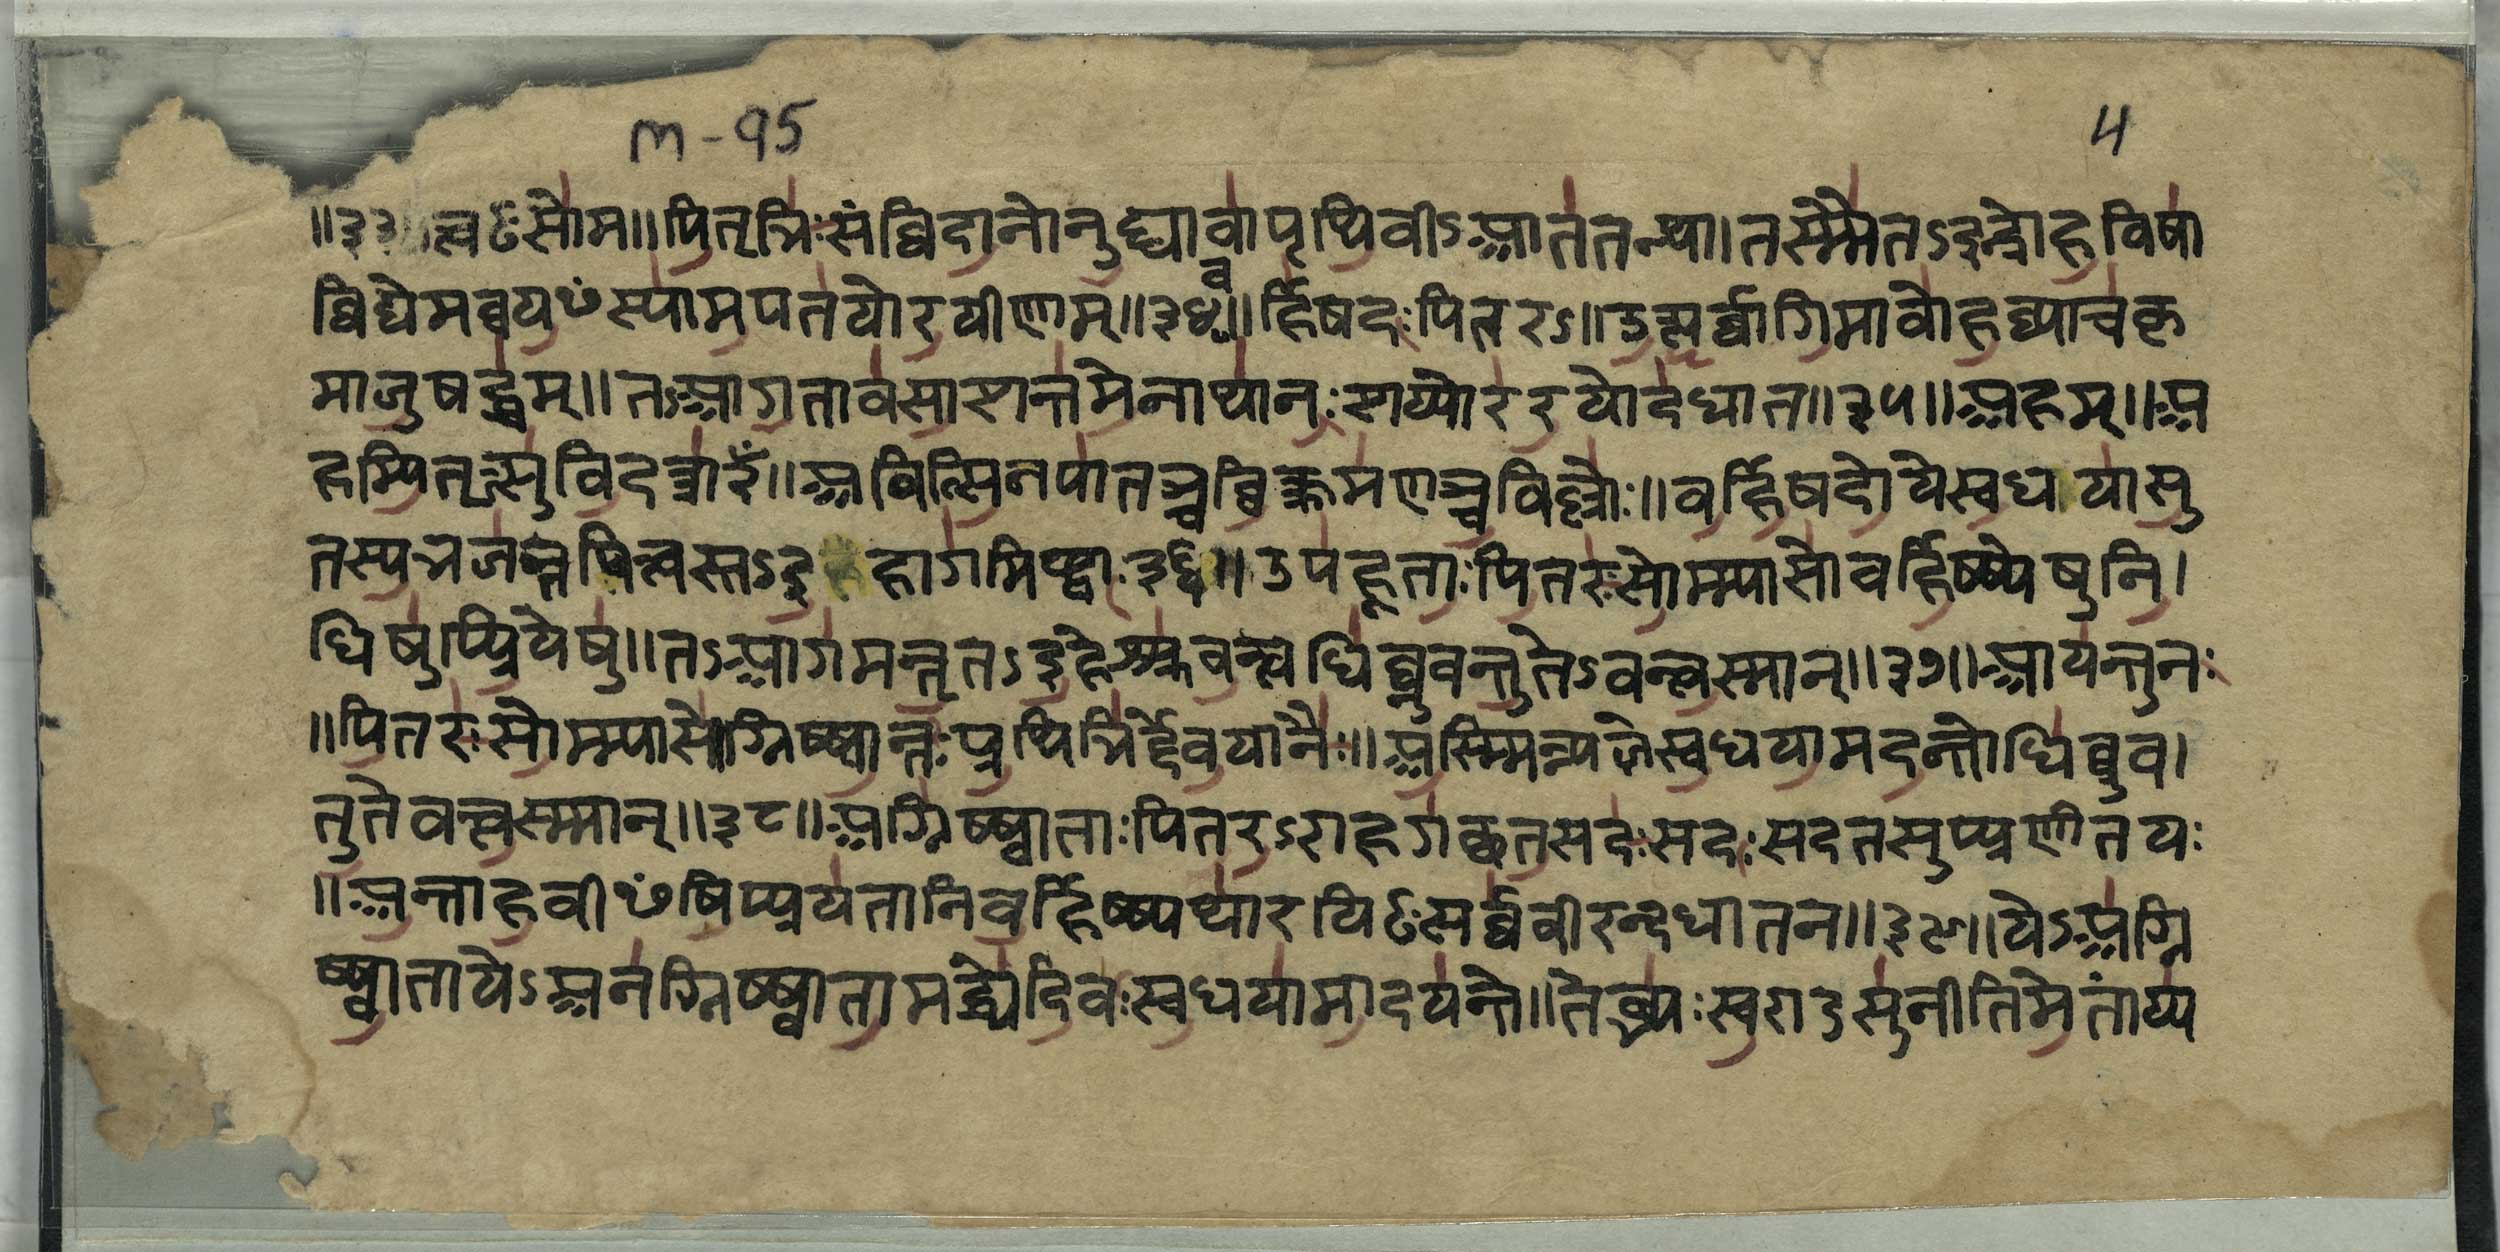 m-95
4
॥३३॥त्वꣳसोम॥पितृभिःसंव्विदानोनुद्यावापृथिवीऽआततन्थ।तस्म्मैतऽइन्दोहविषा
व्विधेमव्वयꣳस्यामपतयोरयीणाम्॥३४॥बर्हिषदःपितरऽ॥उत्यर्व्वागिमावोहव्याचकृ
माजुषद्ध्वम्॥तऽआगतावसाशन्तमेनाथानःशय्योररपोदधात॥३५॥आहम्॥आ
हम्पितॄन्त्सुविदत्राँ२॥अवित्सिनपातञ्चव्विक्क्रमणञ्चविष्णोः॥बर्हिषदोयेस्वधयासु
तस्यभजन्तपित्वस्तऽइहागमिष्ठाः३६॥उपहूताःपितरःसोम्म्यासोबर्हिष्ष्येषुनि।
धिषुप्प्रियेषु॥तऽआगमन्तुतऽइहश्रुवन्त्वधिब्ब्रुवन्तुतेऽवन्त्वस्मान्॥३७॥आयन्तुनः
॥पितरःसोम्म्यासोग्निष्ष्वात्तःपथिभिर्द्देवयानैः॥अस्म्मिन्यज्ञेस्वधयामदन्तोधिब्ब्रुव।
तुतेवन्त्वस्म्मान्॥३८॥अग्निष्ष्वात्ताःपितरऽएहगच्छतसदःसदःसदतसुप्प्रणीतयः
॥अत्ताहवीꣳषिप्प्रयतानिबर्हिष्ष्यथारयिꣳसर्व्ववीरन्दधातन॥३९॥येऽअग्नि
ष्ष्वात्तायेऽअनग्निष्ष्वात्तामद्ध्येदिवःस्वधयामादयन्ते॥तेब्भ्यःस्वराडसुनीतिमेतांय्य